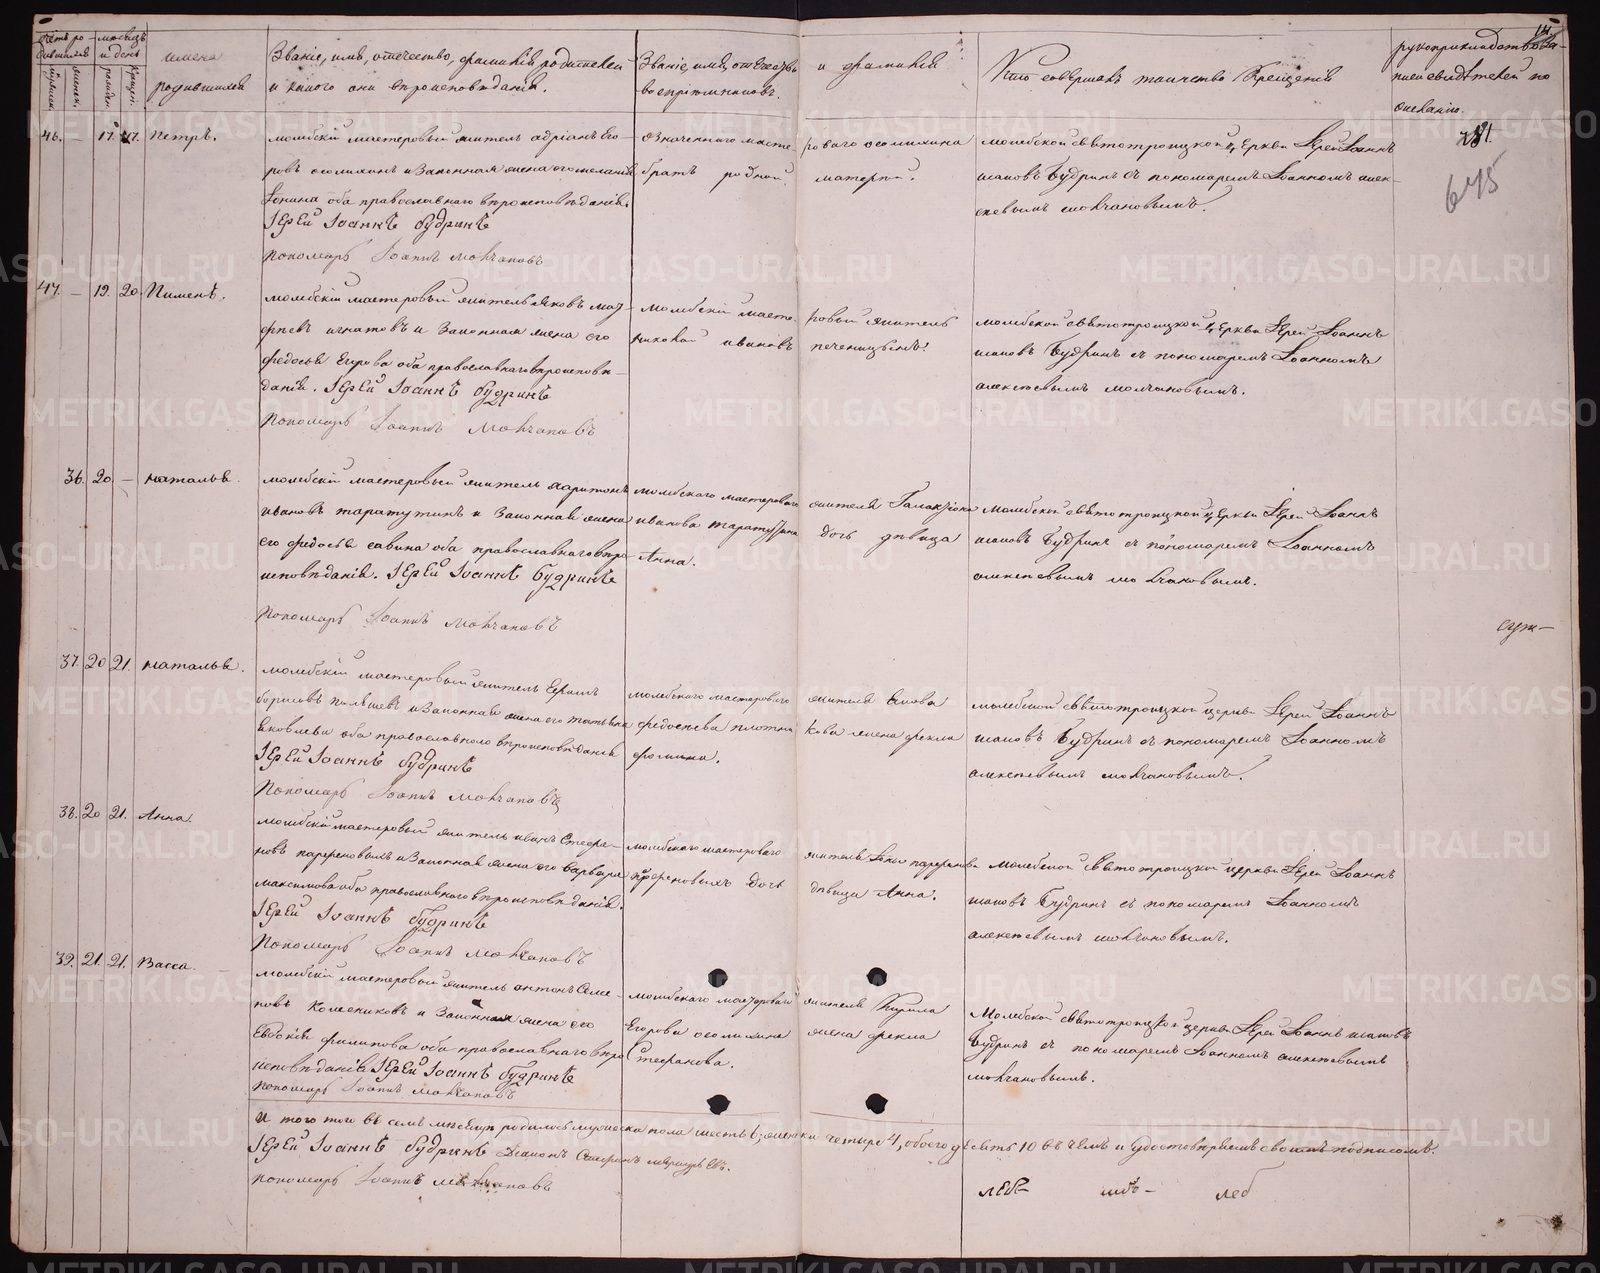 Счетъ ро-
дившихся
мѣсяцъ
и день
мужеск.
женск.
рожден.
крещен.
имена
родившихся
Званіе, имя, отечество, фамилія родителей
и какого они вѣроисповѣданія.
Званіе, имя, отечество
воспріемниковъ.
и фамилія
Кто совершалъ таинство Крещенія
рукоприкладство за-
писи свидѣтелей по
желанію.
46. — 17. 17. Петръ.
молебскій мастеровый житель адріанъ Его-
ровъ осолихинъ и Законная жена его
оба православнаго вѣроисповѣданія.
Іерей Іоаннъ Будринъ
Пономарь Іоаннъ Молчановъ
означеннаго масте-
роваго осолихина
братъ родной
матерьи.
молебской свято троицкой церкви Іерей Іоаннъ
іаковъ Будринъ съ пономаремъ Іоанномъ алек-
сѣевымъ молчановымъ.
645
47. — 19. 20. Пименъ.
молебскій мастеровый житель яковъ
игнатовъ и Законная жена его
федосья Егорова оба православнаго вѣроисповѣ-
данія. Іерей Іоаннъ Будринъ
Пономарь Іоаннъ Молчановъ
молебскій масте-
ровый житель
николай ивановъ
печеницынъ.
молебской свято троицкой церкви Іерей Іоаннъ
іаковъ Будринъ съ пономаремъ Іоанномъ
алексѣевымъ молчановымъ.
36. 20. — наталья.
молебскій мастеровый житель харитонъ
ивановъ таратутинъ и Законная жена
его федосья савина оба православнаго вѣро-
исповѣданія. Іерей Іоаннъ Будринъ
Пономарь Іоаннъ Молчановъ
молебскаго мастероваго
жителя Галактіона
иванова таратутина
дочь дѣвица
Анна.
молебской свято троицкой церкви Іерей Іоаннъ
іаковъ Будринъ съ пономаремъ Іоанномъ
алексѣевымъ молчановымъ.
37. 20 21. наталья.
молебскій мастеровый житель Ефимъ
борисовъ и Законная жена его татьяна
яковлева оба православнаго вѣроисповѣданія
Іерей Іоаннъ Будринъ
Пономарь Іоаннъ Молчановъ
молебскаго мастероваго
жителя
федосѣева плотни-
кова жена фекла
фомина.
молебской свято троицкой церкви Іерей Іоаннъ
іаковъ Будринъ съ пономаремъ Іоанномъ
алексѣевымъ молчановымъ.
38. 20 21. Анна.
молебскій мастеровый житель иванъ Стефа-
новъ парфеновыхъ и Законная жена его варвара
максимова оба православнаго вѣроисповѣданія.
Іерей Іоаннъ Будринъ
Пономарь Іоаннъ Молчановъ
молебскаго мастероваго
жителя
парфеновыхъ дочь
дѣвица Анна.
молебской свято троицкой церкви Іерей Іоаннъ
іаковъ Будринъ съ пономаремъ Іоанномъ
алексѣевымъ молчановымъ.
39. 21. 21. Васса.
молебскій мастеровый житель антонъ Семе-
новъ Колесниковъ и Законная жена его
Евдокія филипова оба православнаго вѣро
исповѣданія Іерей Іоаннъ Будринъ
пономарь Іоаннъ Молчановъ
молебскаго мастероваго
жителя Кирила
Егорова осолихина
жена фекла
Стефанова.
Молебской свято троицкой церкви Іерей Іоаннъ іаковъ
Будринъ съ пономаремъ Іоанномъ алексѣевымъ
молчановымъ.
И того въ семъ мѣсяцѣ родилось мужеска пола шесть 6, женска четыре 4, обоего десять 10 въ чемъ и удостовѣряемъ своимъ подписомъ.
Іерей Іоаннъ Будринъ Діаконъ
пономарь Іоаннъ Молчановъ
METRIKI.GASO-URAL.RU